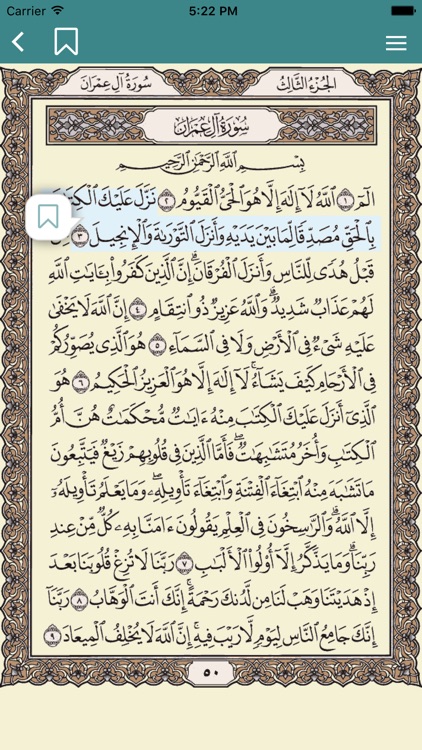 Carrier 5:22 PM
سُورَةُ آلِ عِمْرَانَ الجُزْءُ الثَّالِثُ
سُورَةُ آلِ عِمْرَانَ
بِسْمِ اللَّهِ الرَّحْمَٰنِ الرَّحِيمِ
الٓمٓ ١ ٱللَّهُ لَآ إِلَٰهَ إِلَّا هُوَ ٱلْحَىُّ ٱلْقَيُّومُ ٢ نَزَّلَ عَلَيْكَ ٱلْكِتَٰبَ
بِٱلْحَقِّ مُصَدِّقًا لِّمَا بَيْنَ يَدَيْهِ وَأَنزَلَ ٱلتَّوْرَىٰةَ وَٱلْإِنجِيلَ ٣ مِن
قَبْلُ هُدًى لِّلنَّاسِ وَأَنزَلَ ٱلْفُرْقَانَ ۗ إِنَّ ٱلَّذِينَ كَفَرُوا۟ بِـَٔايَٰتِ ٱللَّهِ
لَهُمْ عَذَابٌ شَدِيدٌ ۗ وَٱللَّهُ عَزِيزٌ ذُو ٱنتِقَامٍ ٤ إِنَّ ٱللَّهَ لَا يَخْفَىٰ
عَلَيْهِ شَىْءٌ فِى ٱلْأَرْضِ وَلَا فِى ٱلسَّمَآءِ ٥ هُوَ ٱلَّذِى يُصَوِّرُكُمْ
فِى ٱلْأَرْحَامِ كَيْفَ يَشَآءُ ۚ لَآ إِلَٰهَ إِلَّا هُوَ ٱلْعَزِيزُ ٱلْحَكِيمُ ٦ هُوَ
ٱلَّذِىٓ أَنزَلَ عَلَيْكَ ٱلْكِتَٰبَ مِنْهُ ءَايَٰتٌ مُّحْكَمَٰتٌ هُنَّ أُمُّ
ٱلْكِتَٰبِ وَأُخَرُ مُتَشَٰبِهَٰتٌ ۖ فَأَمَّا ٱلَّذِينَ فِى قُلُوبِهِمْ زَيْغٌ فَيَتَّبِعُونَ
مَا تَشَٰبَهَ مِنْهُ ٱبْتِغَآءَ ٱلْفِتْنَةِ وَٱبْتِغَآءَ تَأْوِيلِهِۦ ۗ وَمَا يَعْلَمُ تَأْوِيلَهُۥٓ
إِلَّا ٱللَّهُ ۗ وَٱلرَّٰسِخُونَ فِى ٱلْعِلْمِ يَقُولُونَ ءَامَنَّا بِهِۦ كُلٌّ مِّنْ عِندِ
رَبِّنَا ۗ وَمَا يَذَّكَّرُ إِلَّآ أُو۟لُوا۟ ٱلْأَلْبَٰبِ ٧ رَبَّنَا لَا تُزِغْ قُلُوبَنَا بَعْدَ
إِذْ هَدَيْتَنَا وَهَبْ لَنَا مِن لَّدُنكَ رَحْمَةً ۚ إِنَّكَ أَنتَ ٱلْوَهَّابُ ٨ رَبَّنَآ
إِنَّكَ جَامِعُ ٱلنَّاسِ لِيَوْمٍ لَّا رَيْبَ فِيهِ ۚ إِنَّ ٱللَّهَ لَا يُخْلِفُ ٱلْمِيعَادَ ٩
٥٠